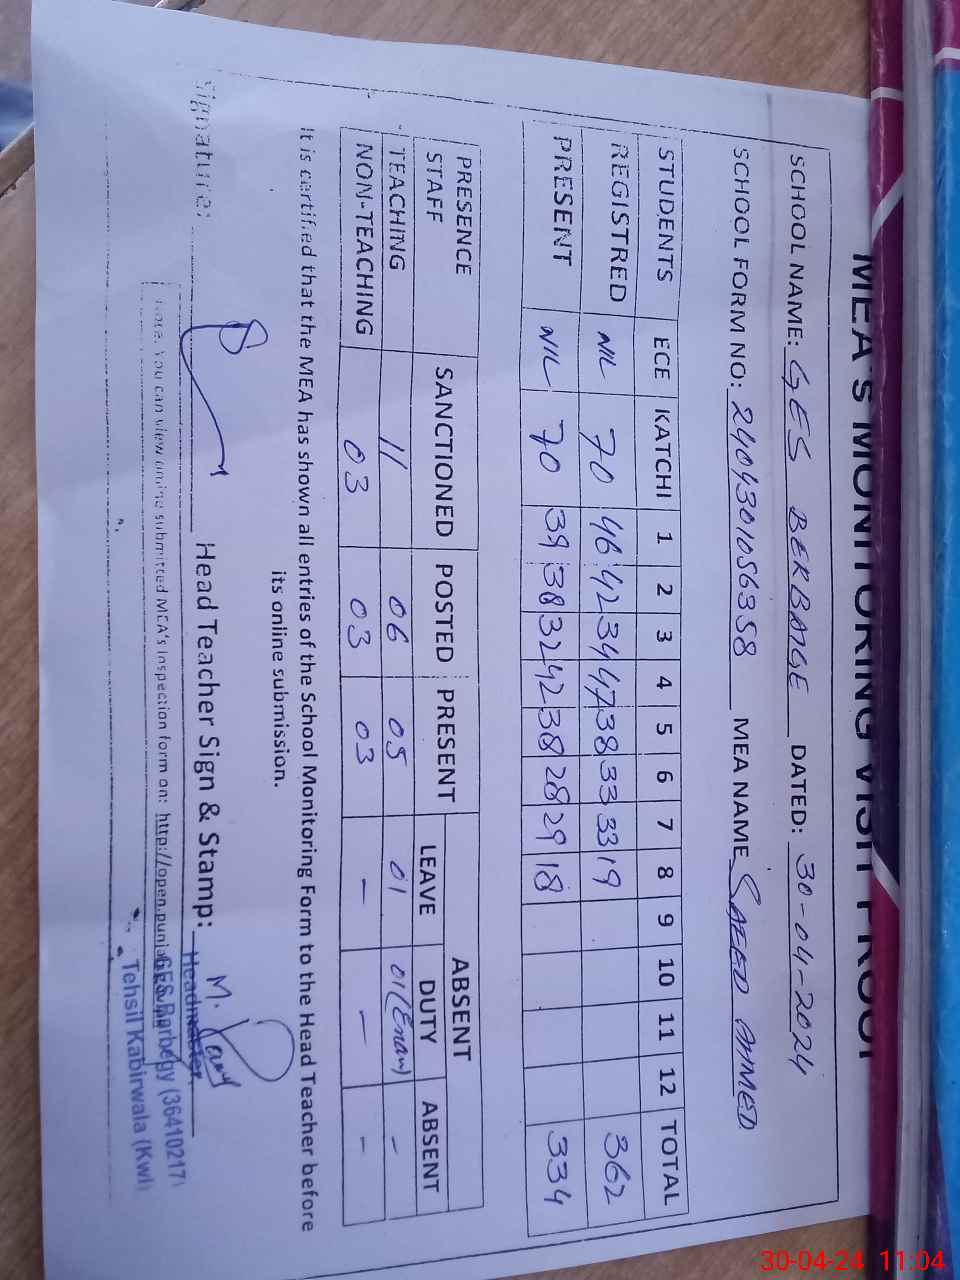 MEA's MONITORING VISIT PROOF
SCHOOL NAME: GES BERBAGE DATED: 30-04-2024
SCHOOL FORM NO: 2404301056358 MEA NAME SAEED AHMED
STUDENTS ECE KATCHI 1 2 3 4 5 6 7 8 9 10 11 12 TOTAL
REGISTRED NIL 70 46 42 34 47 38 33 33 19 362
PRESENT NIL 70 39 38 32 42 38 28 29 18 334
PRESENCE STAFF SANCTIONED POSTED PRESENT ABSENT
LEAVE DUTY ABSENT
TEACHING 11 06 05 01 01(Enam) -
NON-TEACHING 03 03 03 - - -
It is certified that the MEA has shown all entries of the School Monitoring Form to the Head Teacher before
its online submission.
Signature: Head Teacher Sign & Stamp:
Headmaster
GES Barbegy (36410217)
Tehsil Kabirwala (Kwl)
Note. You can view online submitted MEA's inspection form on: http://open.punjab
30-04-24 11:04